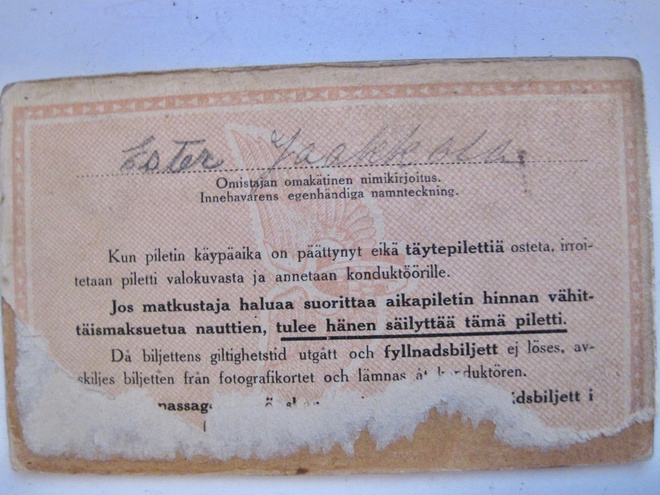 Ester Jaakkola
Omistajan omakätinen nimikirjoitus.
Innehavarens egenhändiga namnteckning.
Kun piletin käypäaika on päättynyt eikä täytepilettiä osteta, irroi-
tetaan piletti valokuvasta ja annetaan konduktöörille.
Jos matkustaja haluaa suorittaa aikapiletin hinnan vähit-
täismaksuetua nauttien, tulee hänen säilyttää tämä piletti.
Då biljettens giltighetstid utgått och fyllnadsbiljett ej löses, av-
skiljes biljetten från fotografikortet och lämnas åt konduktören.